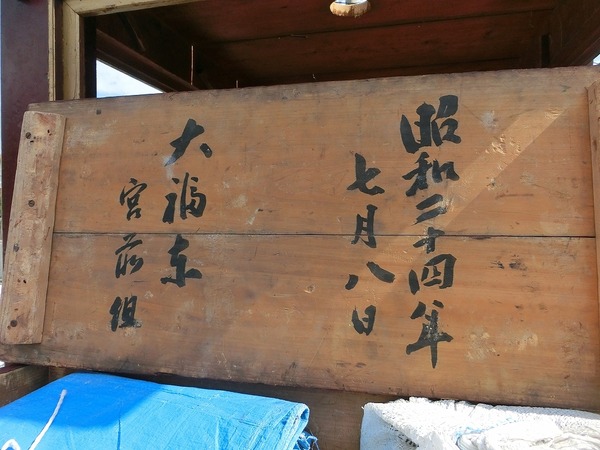 昭和二十四年
七月八日
大福东
宮前組